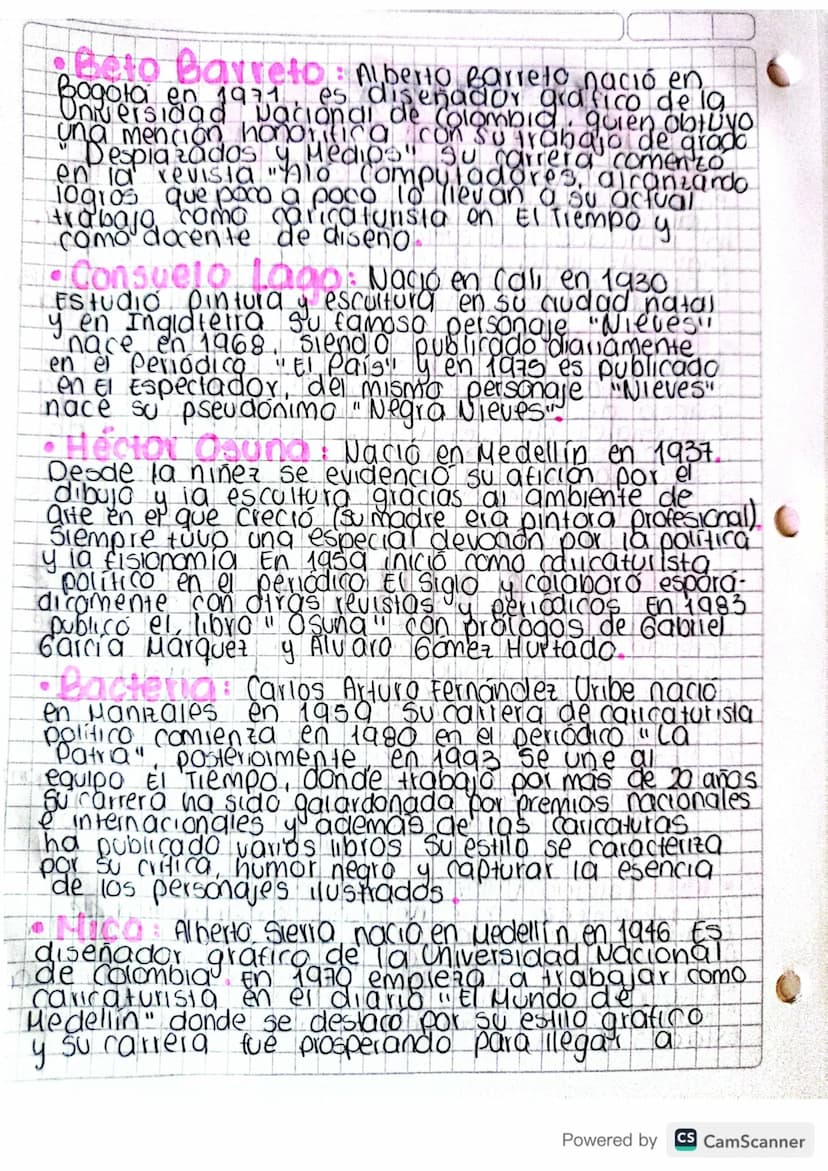 • Beto Barreto: Alberto Barreto nació en
Bogotá en 1971, es diseñador gráfico de la
Universidad Nacional de Colombia, quien obtuvo
una mención honorifica con su trabajo de grado
"Desplazados y Medios" su carrera comenzó
en la revista "Aló Computadores, alcanzando
logros que poco a poco lo llevan a su actual
trabajo como caricaturista en El Tiempo y
como docente de diseño.
• Consuelo Lago: Nació en Cali en 1930
Estudió pintura y escultura en su ciudad natal
y en Inglaterra su famoso personaje "Nieves"
nace en 1968, siendo publicado diariamente
en el periódico "El País" y en 1975 es publicado
en El Espectador, del mismo personaje "Nieves"
nace su pseudónimo "Negra Nieves".
• Héctor Osuna: Nació en Medellín en 1937.
Desde la niñez se evidenció su afición por el
dibujo y la escultura gracias al ambiente de
arte en el que creció (su madre era pintora profesional).
Siempre tuvo una especial devoción por la política
y la fisionomía En 1959 inició como caricaturista
político en el periódico El Siglo y colaboró esporá-
dicamente con otras revistas y periódicos En 1983
publicó el libro "Osuna" con prólogos de Gabriel
García Márquez y Alvaro Gómez Hurtado.
• Bacteria: Carlos Arturo Fernández Uribe nació
en Manizales en 1959 Su carrera de caricaturista
político comienza en 1980 en el periódico "La
Patria", posteriormente en 1993 se une al
equipo El Tiempo, donde trabajó por más de 20 años
Su carrera ha sido galardonada por premios nacionales
e internacionales y además de las caricaturas
ha publicado varios libros Su estilo se caracteriza
por su crítica, humor negro y capturar la esencia
de los personajes ilustrados.
• Mico: Alberto Sierra nació en Medellín en 1946 Es
diseñador gráfico de la Universidad Nacional
de Colombia. En 1970 empieza a trabajar como
caricaturista en el diario "El Mundo de
Medellín" donde se destacó por su estilo gráfico
y su carrera fue prosperando para llegar a
Powered by CS CamScanner